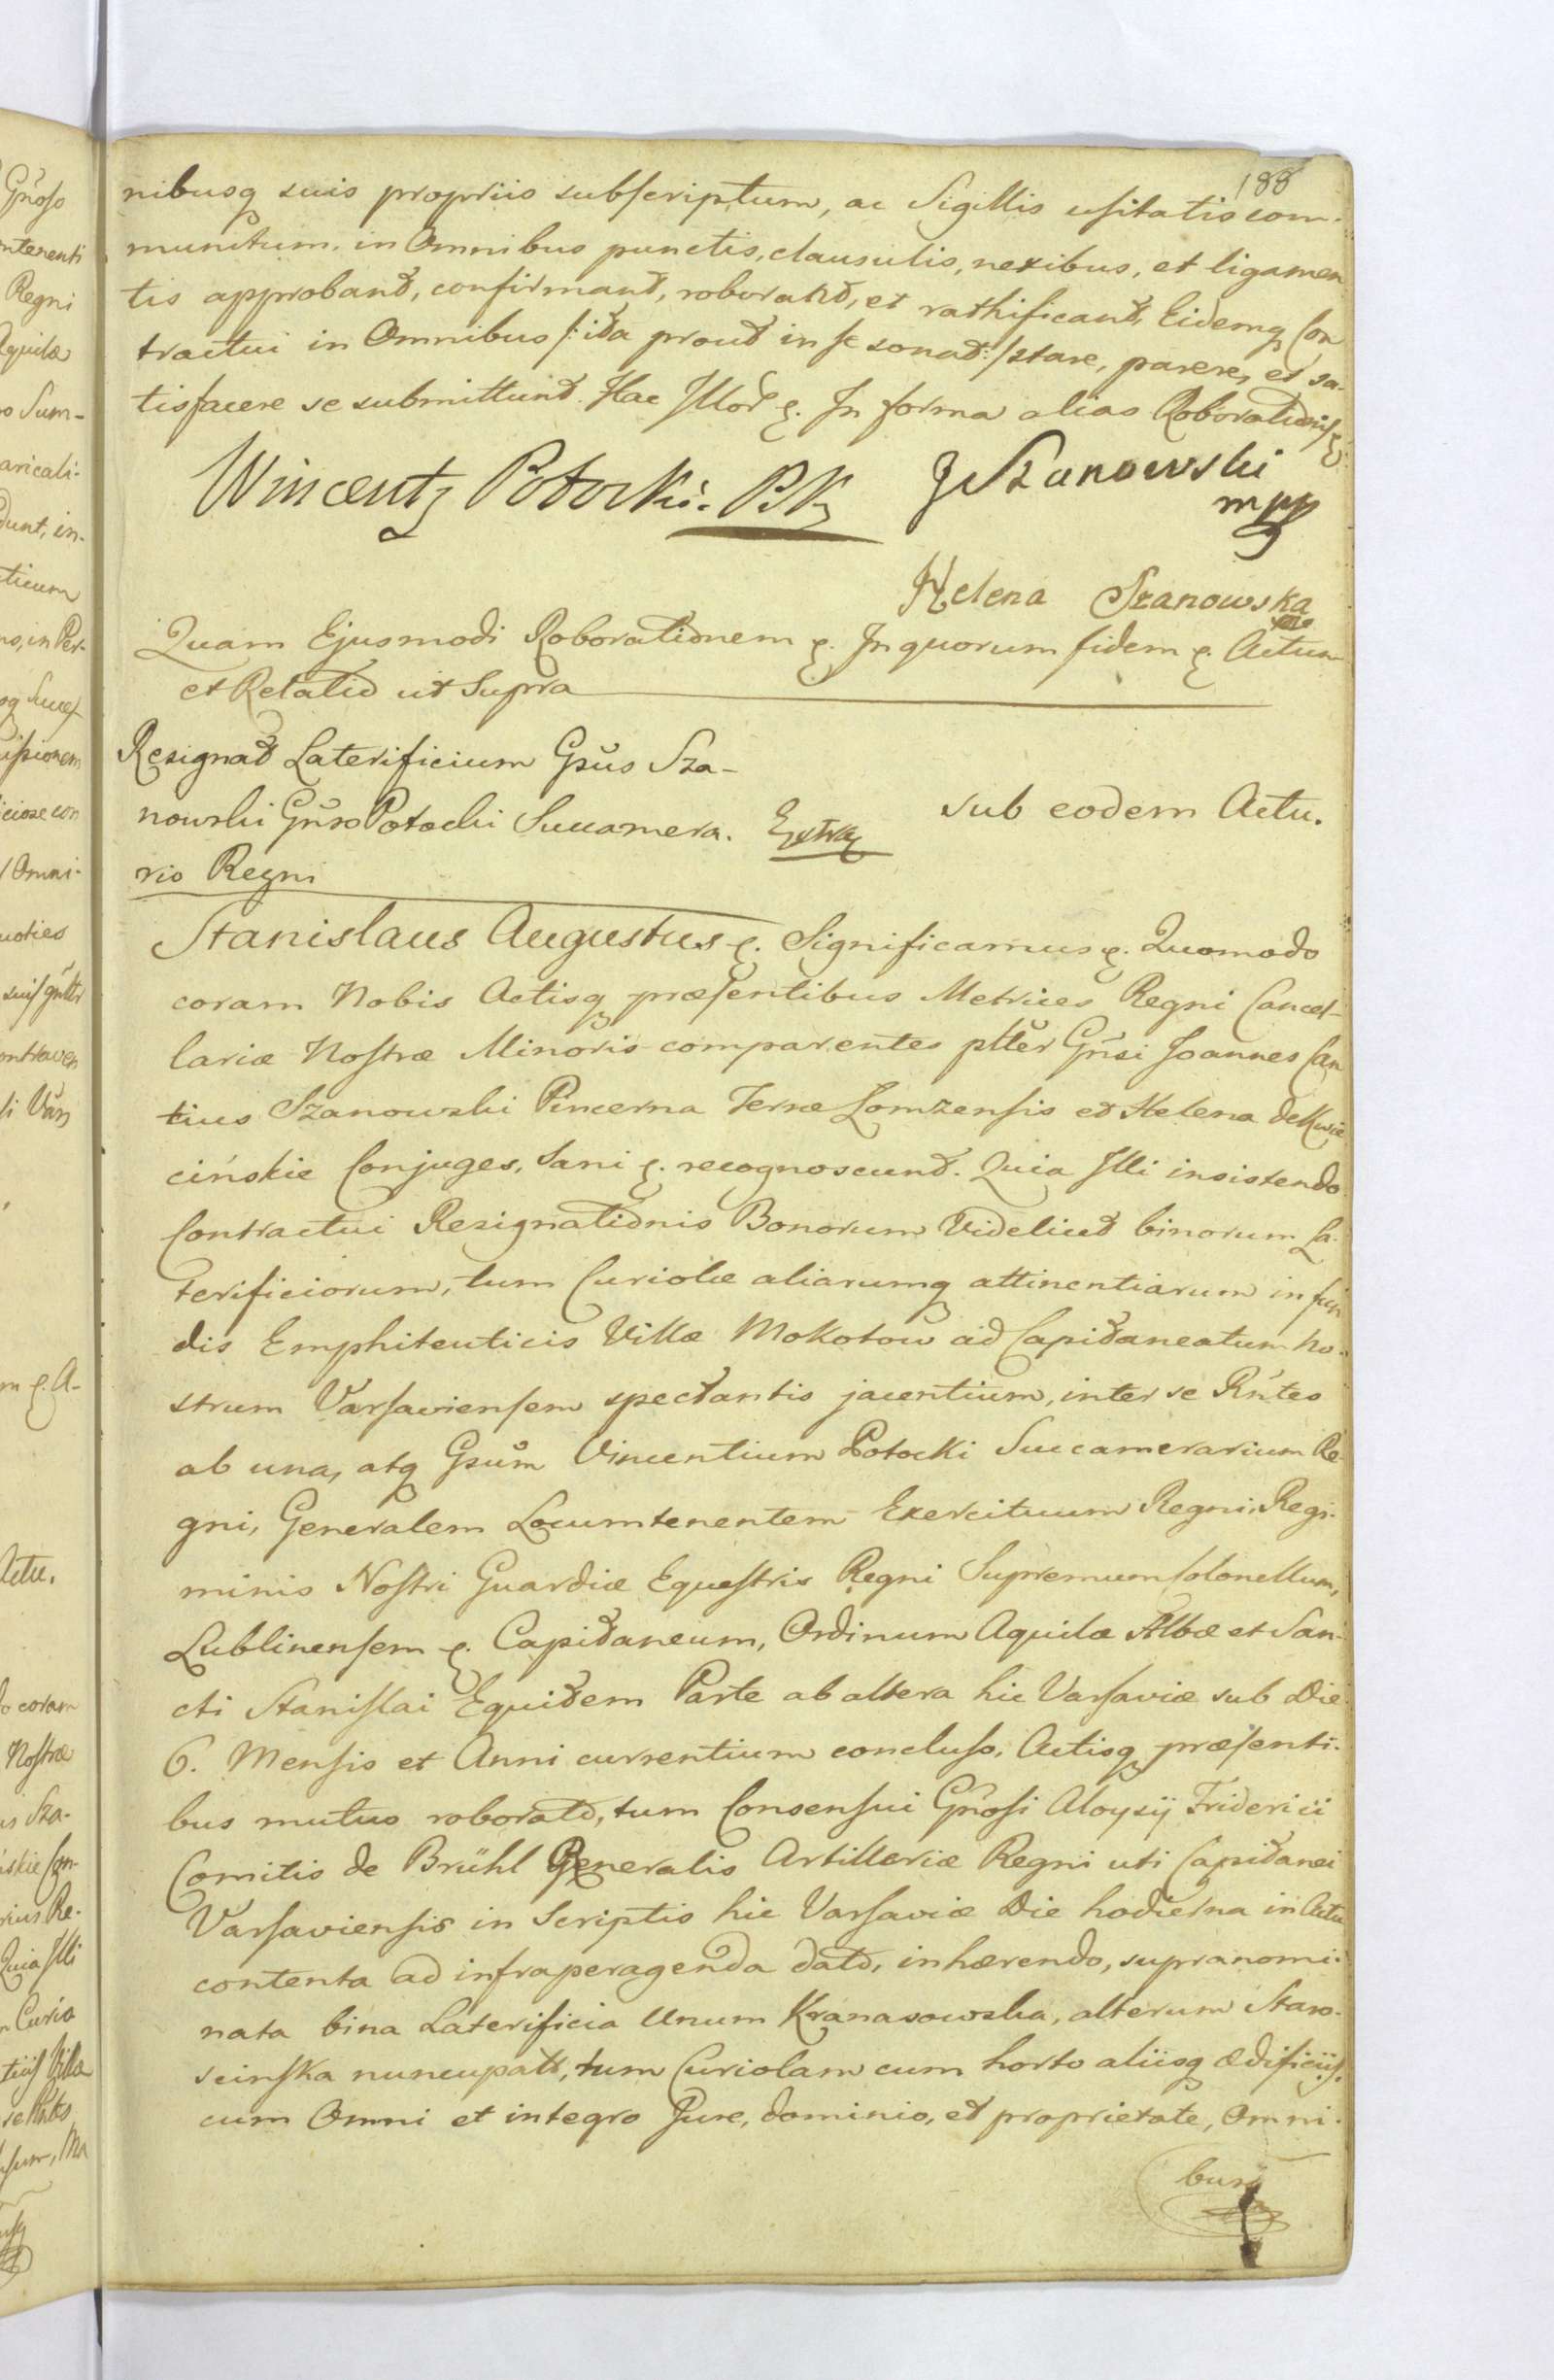 188
nibusq suis propriis subscriptum, ac Sigillis usitatis com-
munitum, in Omnibus punctis, clausulis, nexibus, et ligamen
tis approband, confirmand, roborand, et rathificand, Eidemq Con
tractui in Omnibus /: ita prout in se sonat :/ stare, parere, et sa-
tisfacere se submittunt. Hac Mod e. In forma alias Roborationis e
Wincenty Potocki. PK
J Szanowski
mpp
Helena Szanowska
Quam Ejusmodi Roborationem e. In quorum fidem e. Actum
et Relatio ut Supra
Resignat Laterificium Gsus Sza-
nowski Gnso Potocki Succamera. Extra
rio Regni
sub eodem Actu.
Stanislaus Augustus e. Significamus e. Quomodo
coram Nobis Actisq præsentibus Metrices Regni Cancel-
lariæ Nostræ Minoris comparentes plter Gnsi Joannes Can
tius Szanowski Pincerna Terræ Lomzensis et Helena de Kwie
cińskie Conjuges, Sani e. recognoscunt. Quia Illi insistendo
Contractui Resignationis Bonorum Videlicet binorum La-
terificiorum, tum Curiolæ aliarumq attinentiarum in fun
dis Emphiteuticis Villæ Mokotow ad Capitaneatum No-
strum Varsaviensem spectantis jacentium, inter se Rntes
ab una, atq Gsum Vincentium Potocki Succamerarium Re-
gni, Generalem Locumtenentem Exercituum Regni, Regi-
minis Nostri Guardiæ Equestris Regni Supremum Colonellum,
Lublinensem e. Capitaneum, Ordinum Aquilæ Albæ et San-
cti Stanislai Equitem Parte ab altera hic Varsaviæ sub Die
6. Mensis et Anni currentium concluso, Actisq præsenti-
bus mutuo roborato, tum Consensui Gnosi Aloysij Friderici
Comitis de Brühl Generalis Artilleriæ Regni uti Capitanei
Varsaviensis in Scriptis hic Varsaviæ Die hodierna in Actu
contenta ad infraperagenda dato, inhærendo, supranomi-
nata bina Laterificia Unum Kranasowska, alterum Staro-
scinska nuncupatt, tum Curiolam cum horto aliisq ædificiis,
cum Omni et integro Jure, dominio, et proprietate, Omni-
busq